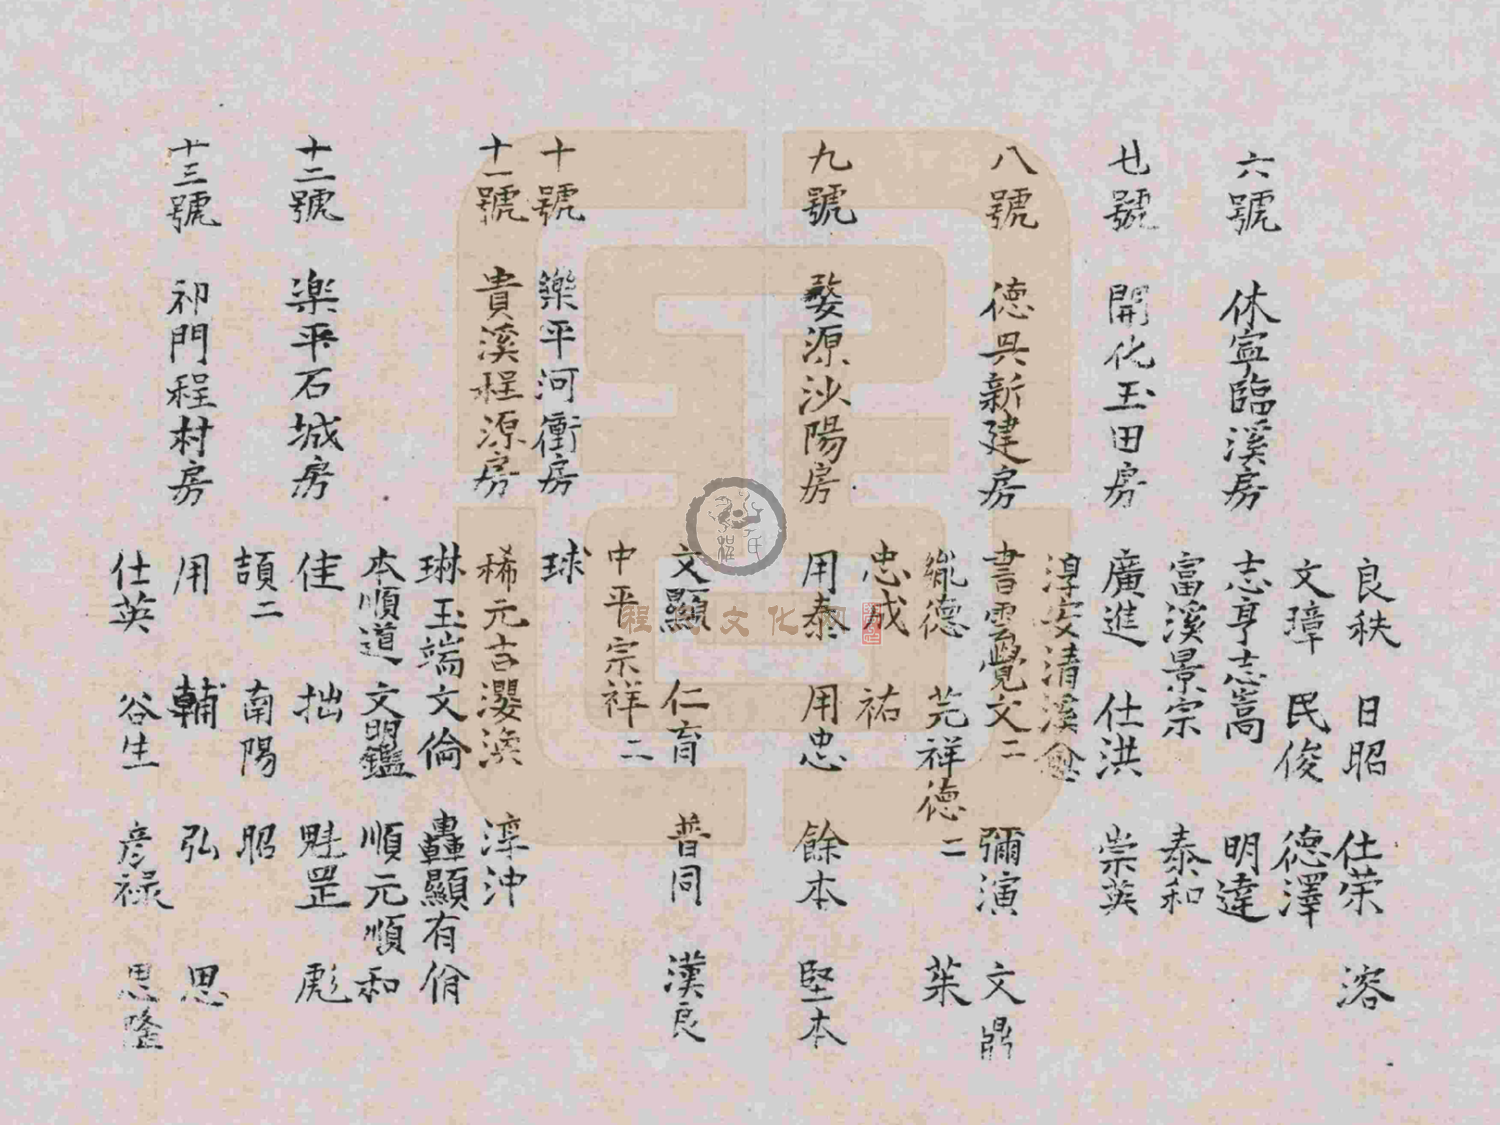 良秩 日昭 仕荣 溶
文璋 民俊 德澤
六號 休寧臨溪房 志亨志嵩 明達
富溪景宗 泰和
七號 開化玉田房 廣進 仕洪 崇英
淳安清溪愈
八號 德興新建房 書雲覺文二 彌演 文鼎
胤德 芫祥德二 茱
忠成 祐
九號 婺源沙陽房 用泰 用忠 餘本 堅本
文顯 仁育 普同 漢良
中平宗祥二
十號 樂平河衝房 球
十一號 貴溪程源房 稀元吉瓔渙 淳沖
琳玉端文倫 轟顯有脩
本順道 文明鑑 順元順和
十二號 楽平石城房 佳 拙 魁罡 彪
頡二 南陽 昭
十三號 祁門程村房 用 輔 弘 思
仕英 谷生 彦禄 思隆
程氏文化网